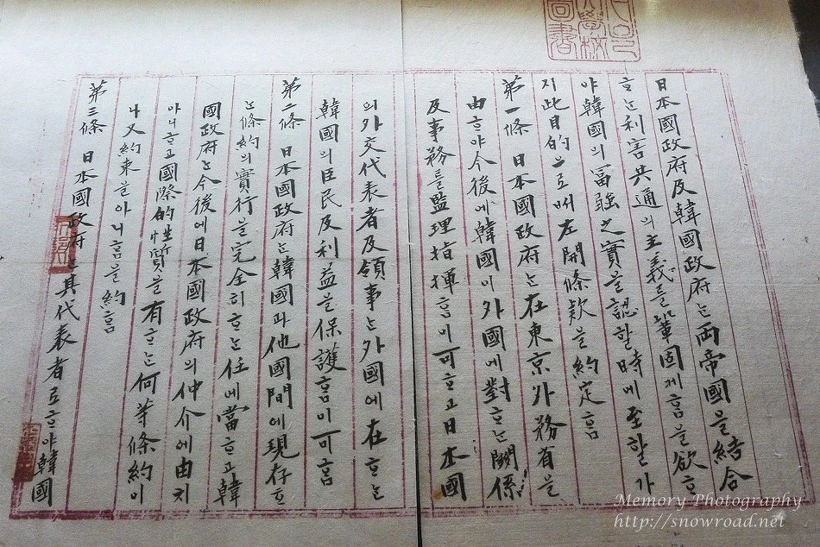 日本國政府及韓國政府ᄂᆞᆫ両帝國을結合
ᄒᆞᄂᆞᆫ利害共通의主義를鞏固케ᄒᆞᆷ을欲ᄒᆞ
야韓國의冨强之實을認ᄒᆞᆯ時에至ᄒᆞᆯ가
지此目的으로써左開條欵을約定ᄒᆞᆷ
第一條 日本國政府ᄂᆞᆫ在東京外務省을
由ᄒᆞ야今後에韓國이外國에對ᄒᆞᄂᆞᆫ關係
及事務를監理指揮ᄒᆞᆷ이可ᄒᆞ고日本國
의外交代表者及領事ᄂᆞᆫ外國에在ᄒᆞᄂᆞᆫ
韓國의臣民及利益을保護ᄒᆞᆷ이可ᄒᆞᆷ
第二條 日本國政府ᄂᆞᆫ韓國과他國間에現存ᄒᆞ
ᄂᆞᆫ條約의實行을完全히ᄒᆞᄂᆞᆫ任에當ᄒᆞ고韓
國政府ᄂᆞᆫ今後에日本國政府의仲介에由치
아니ᄒᆞ고國際的性質을有ᄒᆞᄂᆞᆫ何等條約이
나又約束을아니ᄒᆞᆷ을約ᄒᆞᆷ
第三條 日本國政府ᄂᆞᆫ其代表者로ᄒᆞ야韓國
Memory Photography
http://snowroad.net